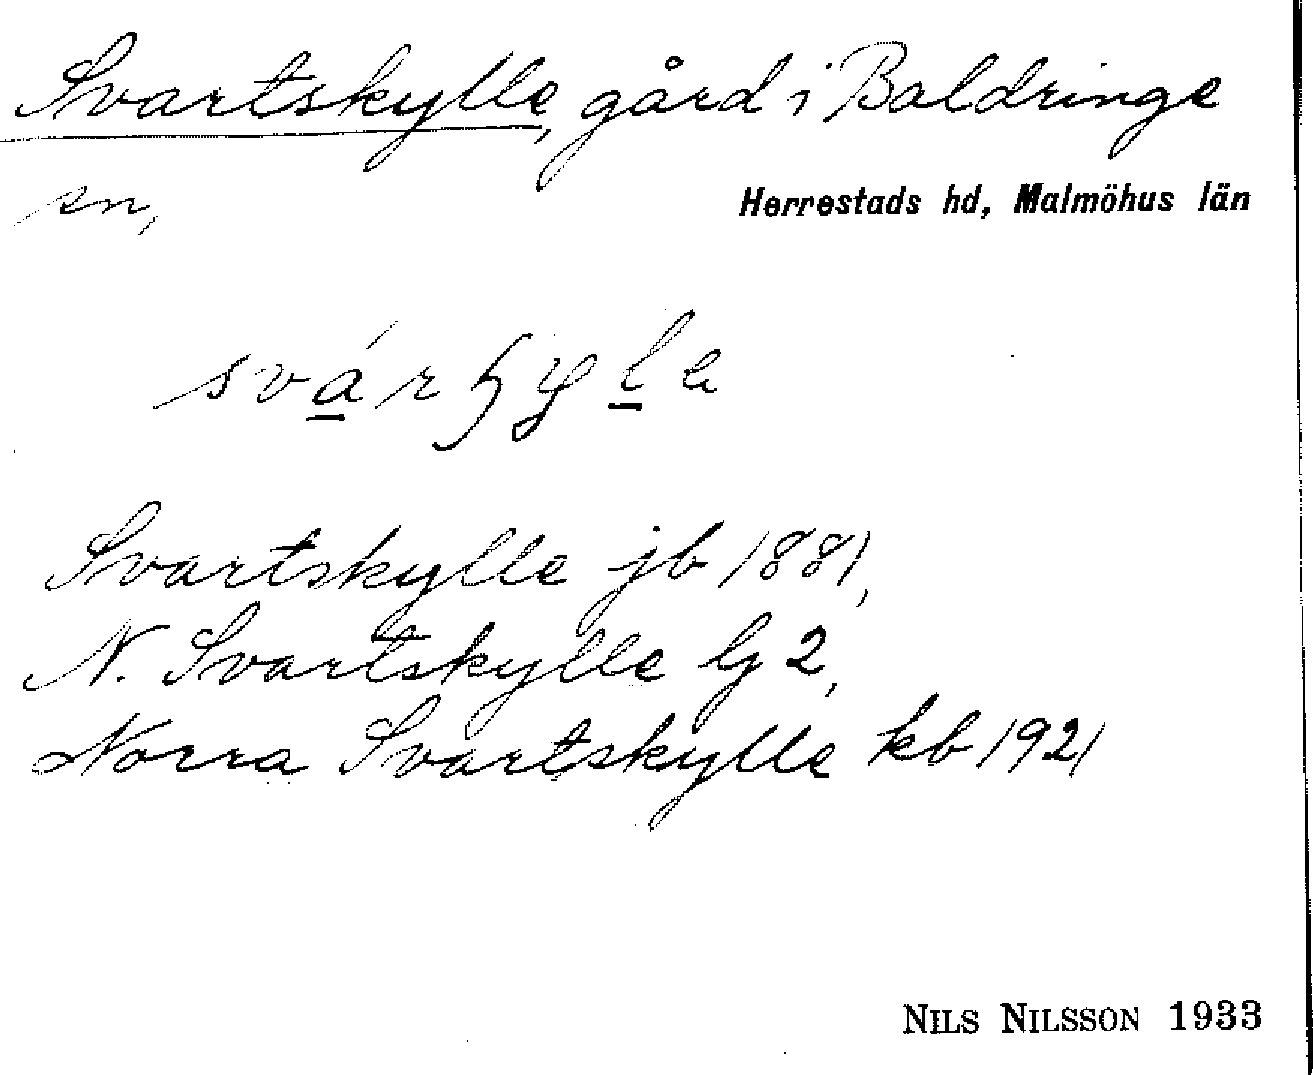 Svartskylle, gård i Baldringe
sn, Herrestads hd, Malmöhus län
Svartskylle jb 1881,
N. Svartskylle lj 2,
Norra Svartskylle kb 1921
NILS NILSSON 1933